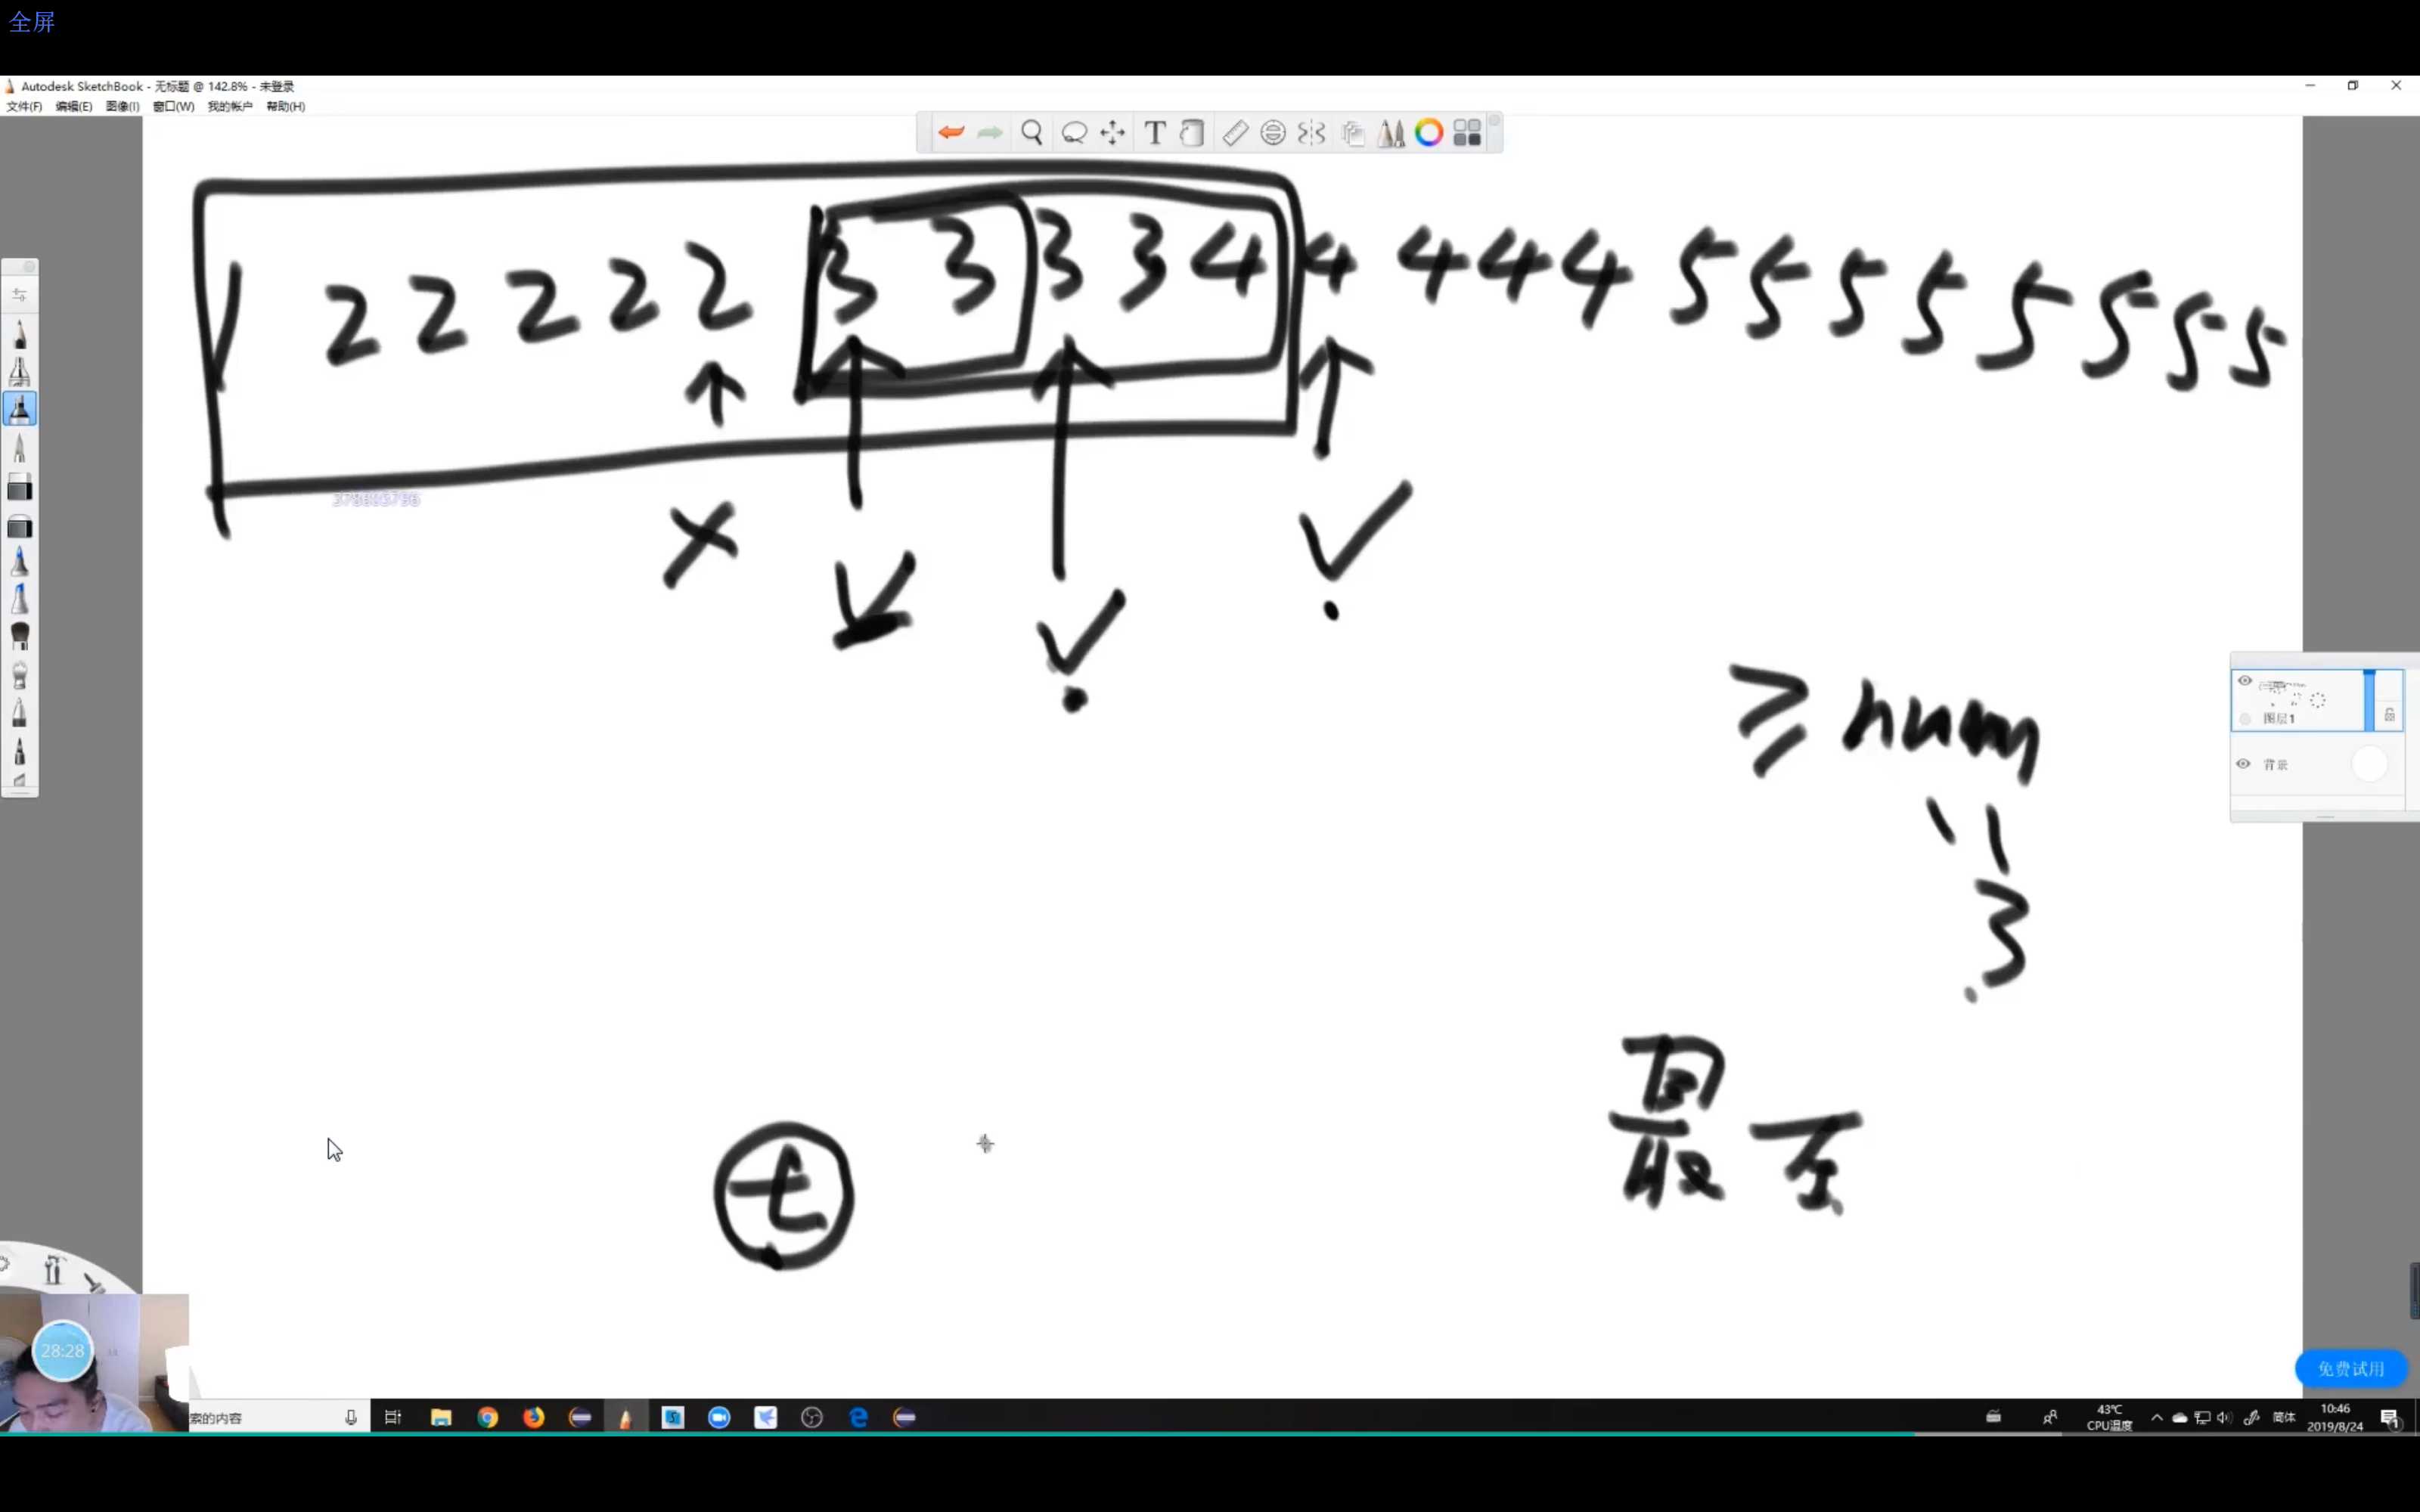 全屏
Autodesk SketchBook - 无标题 @ 142.8% - 未登录
文件(F) 编辑(E) 图像(I) 窗口(W) 我的帐户 帮助(H)
T
1 2 2 2 2 2 3 3 3 3 4 4 4 4 4 5 5 5 5 5 5 5 5
≥ num
3
图层1
背景
最左
t
28:28
免费试用
索的内容
43℃
CPU温度
简体
10:46
2019/8/24
1